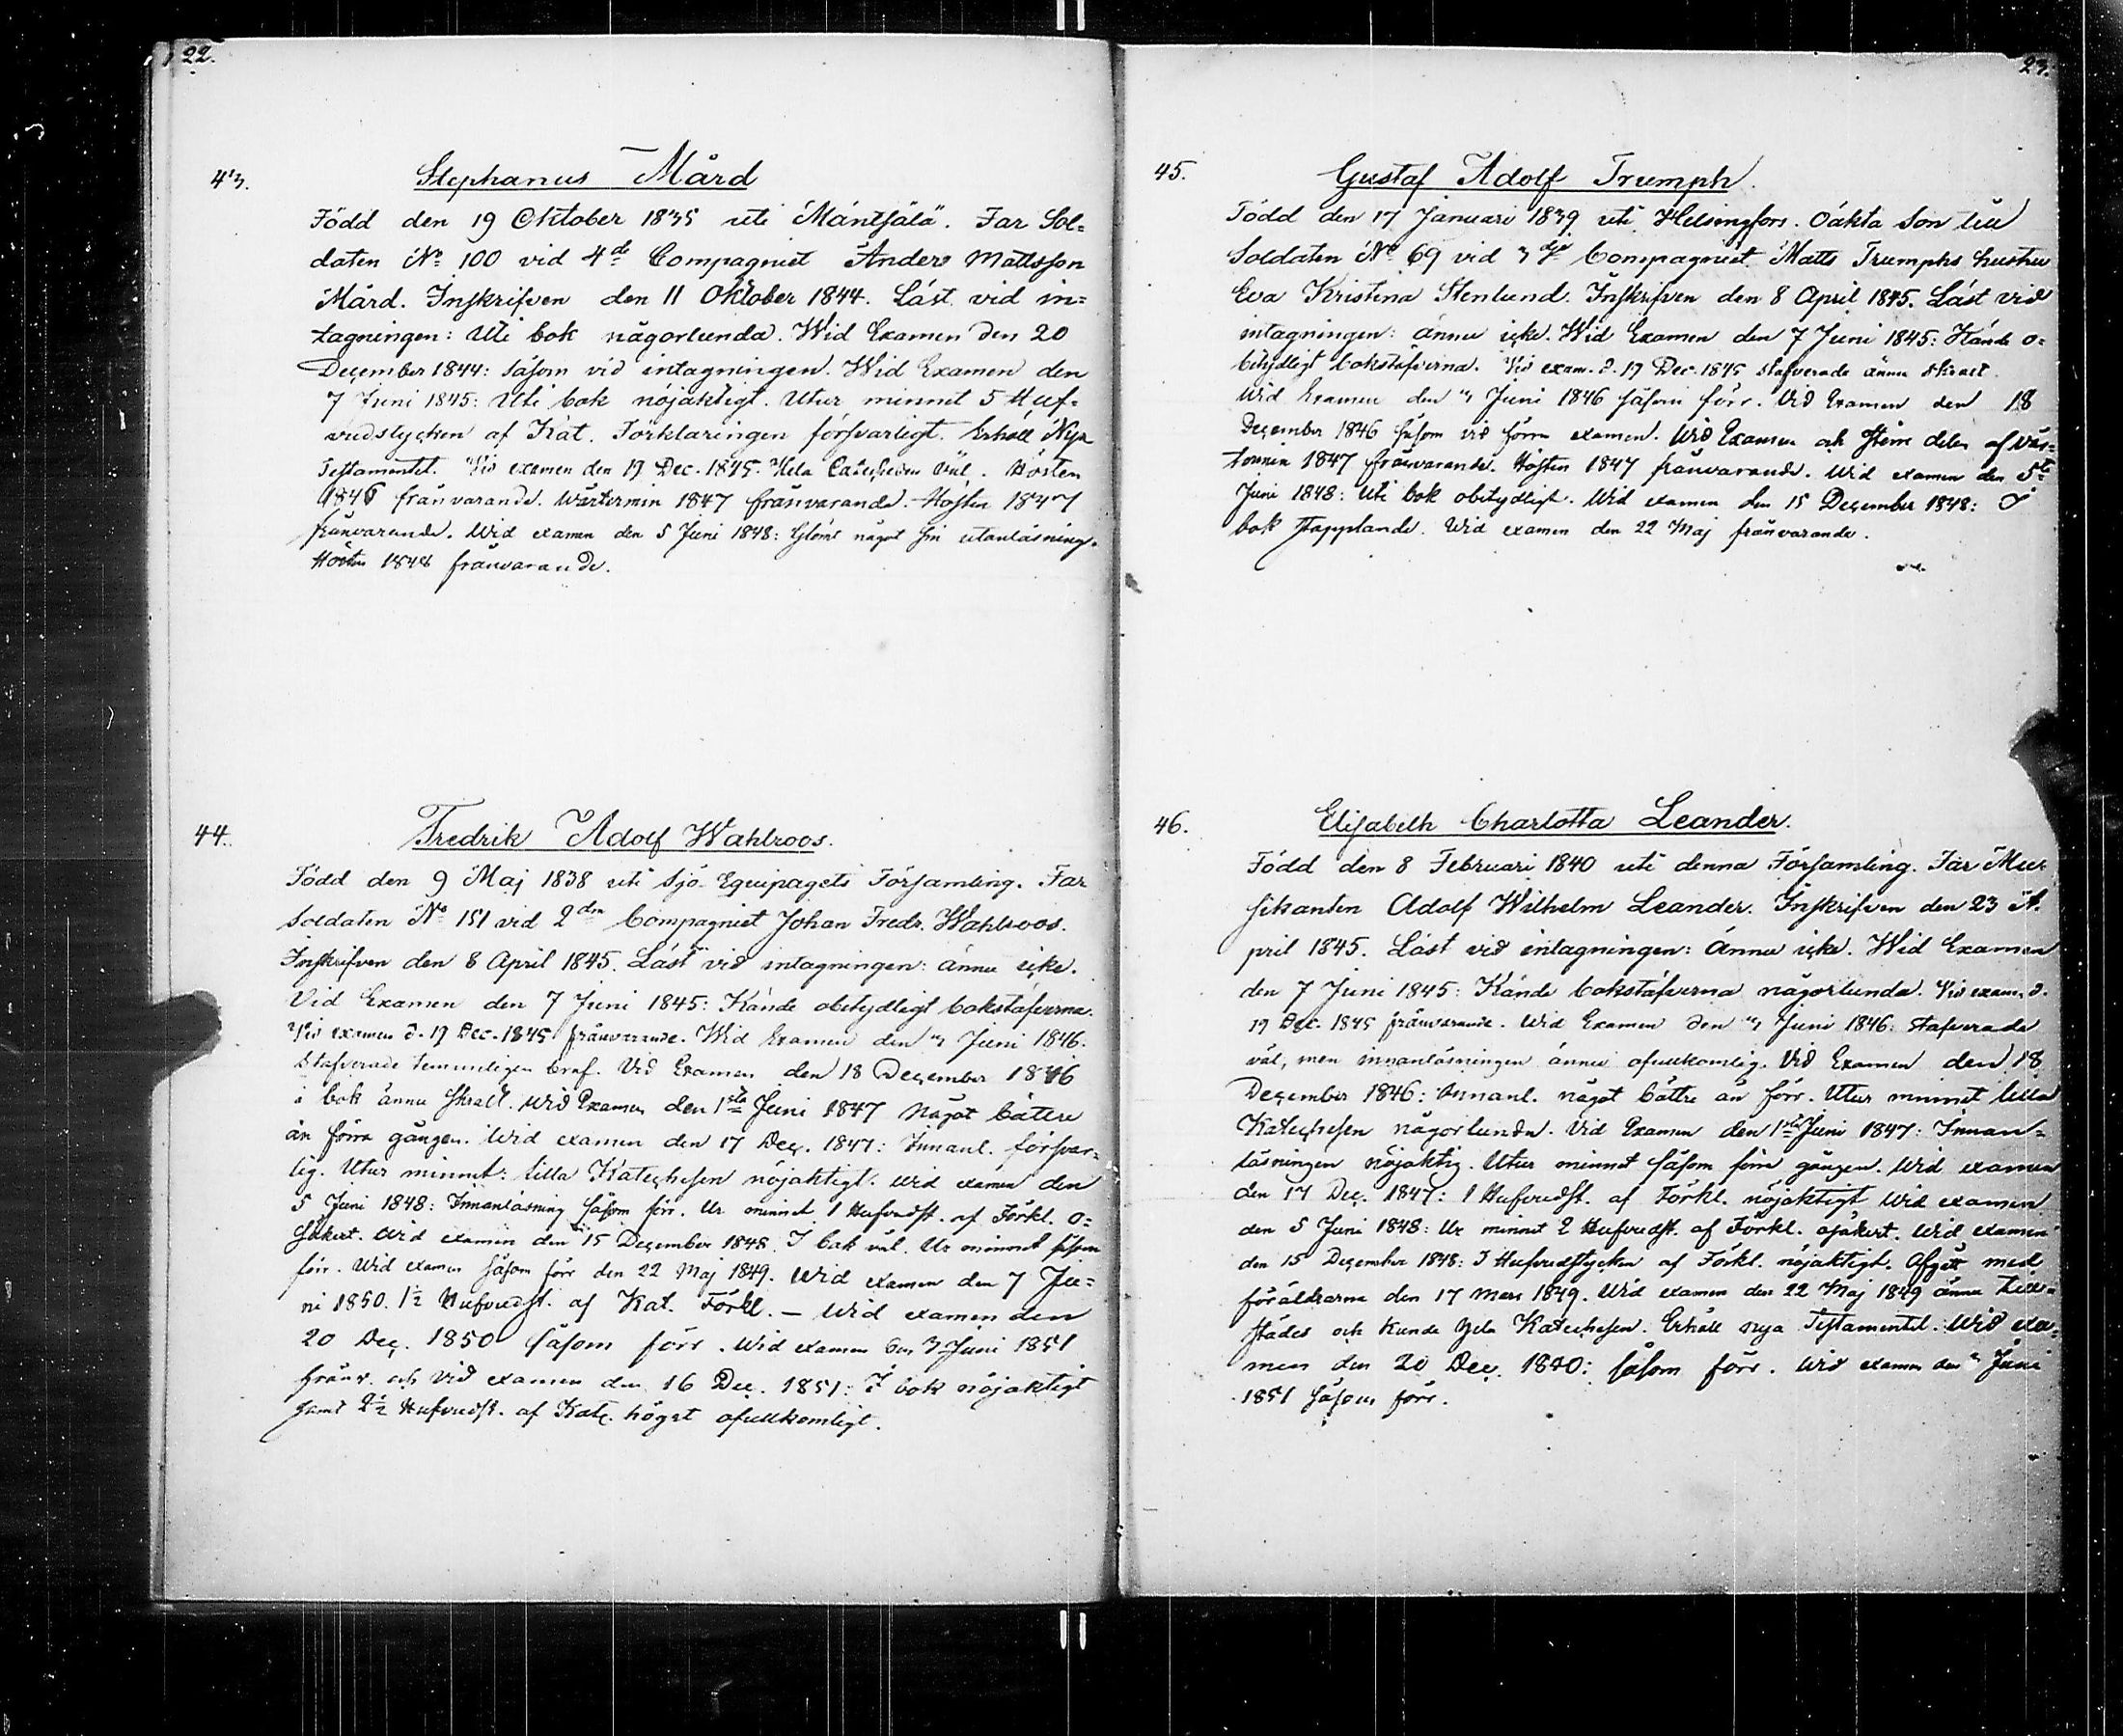 22.
43. Stephanus Mård
Född den 19 Oktober 1835 uti Mäntsälä. Far Sol=
daten No 100 vid 4de Compagniet Anders Mattsson
Mård. Inskrifven den 11 Oktober 1844. Läst vid in=
tagningen: Uti bok någorlunda. Wid Examen den 20
December 1844: såsom vid intagningen. Wid Examen den
7 Juni 1845: Uti bok nöjaktigt. Utur minnet 5 Huf=
vudstycken af Kat. Förklaringen försvarligt. Erhöll Nya
Testamentet. Vid examen den 19 Dec. 1845. Hela Catechesen väl. Hösten
1846 frånvarande. Wårtermin 1847 frånvarande. Hösten 1847
frånvarande. Wid examen den 5 Juni 1848: Glömt något sin utanläsning.
Hösten 1848 frånvarande.
44. Fredrik Adolf Wahlroos.
Född den 9 Maj 1838 uti Sjö-Equipagets Församling. Far
Soldaten No 151 vid 2dra Compagniet Johan Fredr. Wahlroos.
Inskrifven den 8 April 1845. Läst vid intagningen: ännu icke.
Vid Examen den 7 Juni 1845: Kände obetydligt bokstäfverna.
Vid examen d. 19 Dec. 1845 frånvarande. Wid Examen den Juni 1846.
Stafverade temmeligen braf. Vid Examen den 18 December 1846
i bok ännu skralt. Wid Examen den 1sta Juni 1847 något bättre
än förra gången. Wid examen den 17 Dec. 1847: Innanl. försvar=
lig. Utur minnet: lilla Katechesen nöjaktigt. Wid examen den
5 Juni 1848: Innanläsning såsom förr. Ur minnet 1 Hufvudst. af Förkl. o=
säkert. Wid examen den 15 December 1848. I bok väl. Ur minnet såsom
förr. Wid examen såsom förr den 22 Maj 1849. Wid examen den 7 Ju=
ni 1850. 1½ Hufvudst. af Kat. Förkl. — Wid examen den
20 Dec. 1850 såsom förr. Wid examen den 3 Juni 1851
frånv. och vid examen den 16 Dec. 1851: I bok nöjaktigt
samt 2½ Hufvudst. af Kate. högst ofullkomligt.
23.
45. Gustaf Adolf Trumph.
Född den 17 Januari 1839 uti Helsingfors. Oäkta Son till
Soldaten No 69 vid 3dje Compagniet Matts Trumphs hustru
Eva Kristina Stenlund. Inskrifven den 8 April 1845. Läst vid
intagningen: ännu icke. Wid Examen den 7 Juni 1845: Kände o=
betydligt bokstäfverna. Vid exam. d. 19 Dec. 1845 stafverade ännu skralt.
Wid Examen den Juni 1846 såsom förr. Vid Examen den 18
December 1846 såsom vid förra examen. Wid Examen och större delen af Vår=
terminen 1847 frånvarande. Hösten 1847 frånvarande. Wid examen den 5te
Juni 1848: Uti bok obetydligt. Wid examen den 15 December 1848: I
bok stapplande. Wid examen den 22 Maj frånvarande.
46. Elisabeth Charlotta Leander.
Född den 8 Februari 1840 uti denna Församling. Far Mu=
sikanten Adolf Wilhelm Leander. Inskrifven den 23 A=
pril 1845. Läst vid intagningen: Ännu icke. Wid Examen
den 7 Juni 1845: Kände bokstäfverna någorlunda. Vid exam. d.
19 Dec. 1845 frånvarande. Wid Examen den Juni 1846: stafverade
väl, men innanläsningen ännu ofullkomlig. Vid Examen den 18
December 1846: Innanl. något bättre än förr. Utur minnet lilla
Katechesen någorlunda. Vid Examen den 1sta Juni 1847: Innan=
läsningen nöjaktig. Utur minnet såsom förra gången. Wid examen
den 17 Dec. 1847: 1 Hufvudst. af Förkl. nöjaktigt Wid examen
den 5 Juni 1848: Ur minnet 2 Hufvudst. af Förkl. osäkert. Wid examen
den 15 December 1848: 3 Hufvudstycken af Förkl. nöjaktigt. Afgått med
föräldrarne den 17 Mars 1849. Wid examen den 22 Maj 1849 ännu till=
städes och kunde hela Katechesen. Erhöll nya Testamentet. Wid exa=
men den 20 Dec. 1840: såsom förr. Wid examen den Juni
1851 såsom förr.